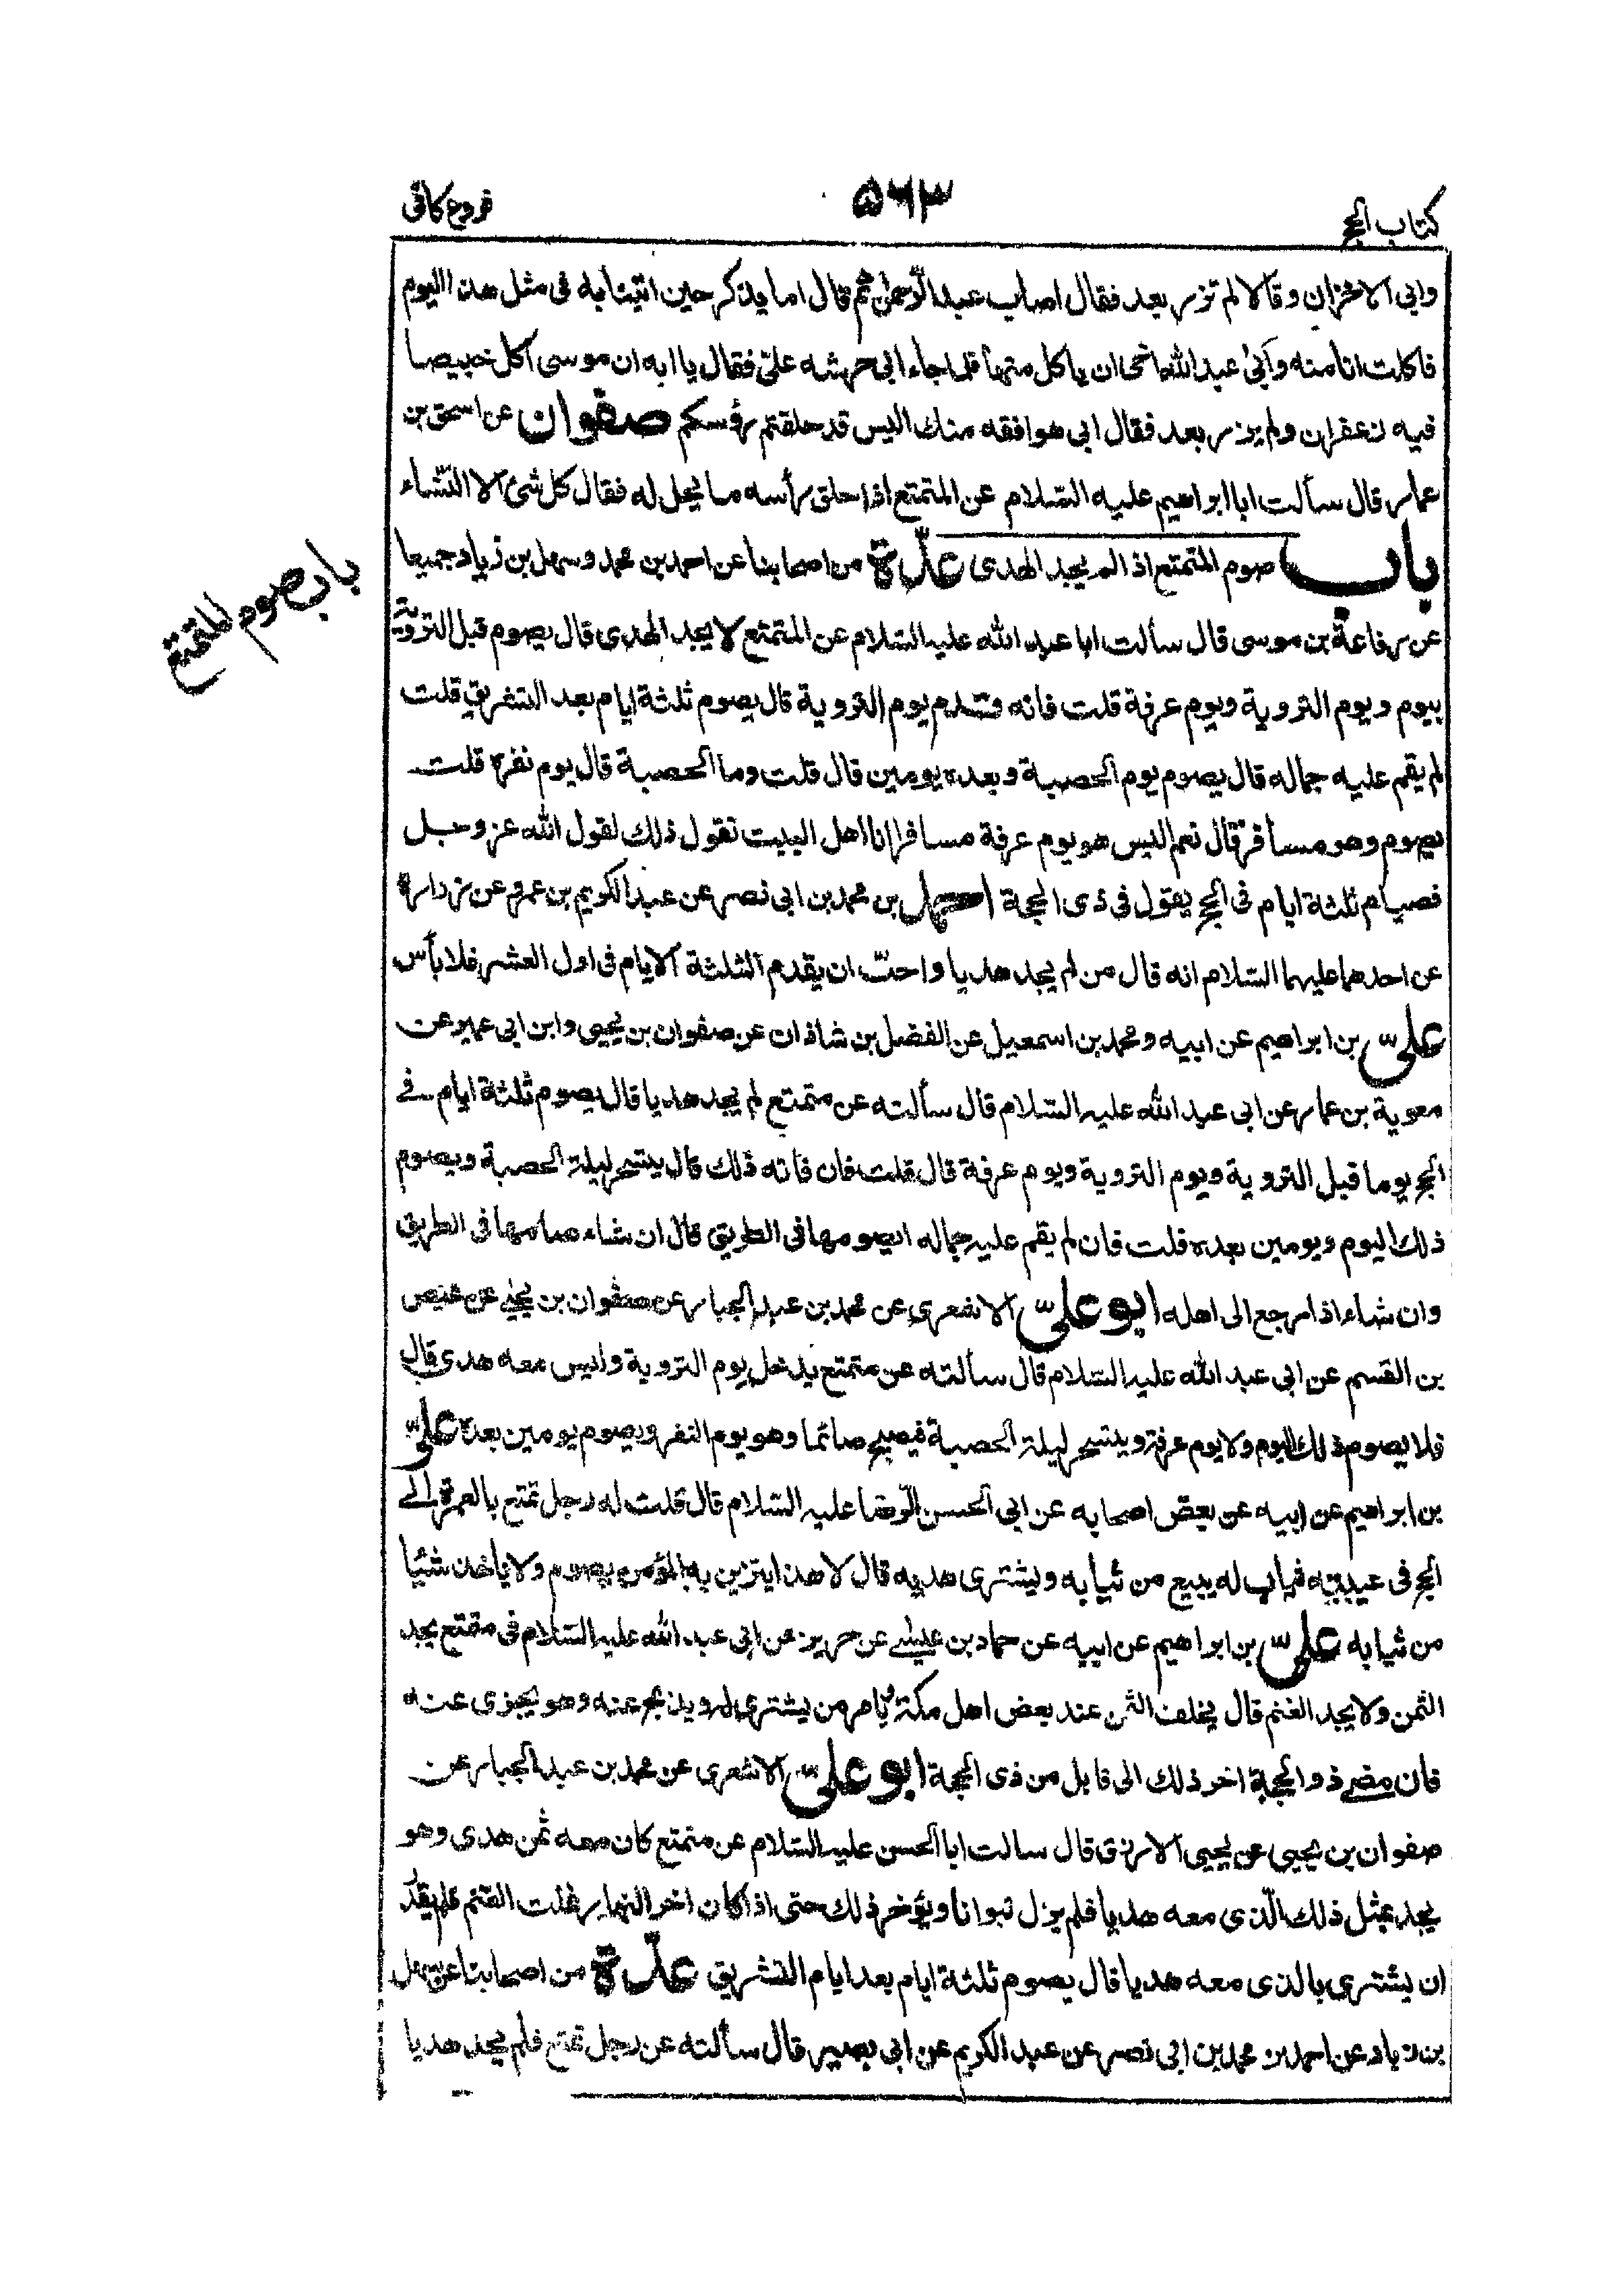 كتاب الحج
٥٦٣
فروع كافى
وابى الاخران وقالا لم تزر بعد فقال اصاب عبد الرّحمٰن ثم قال اما يذكر حين اتينا به فى مثل هذا اليوم
فاكلت انا منه وابىٰ عبد الله اخى ان ياكل منها فلما جاء ابى حرشه علىّ فقال يا ابه ان موسى اكل خبيصا
فيه زعفران ولم يزر بعد فقال ابى هو افقه منك اليس قد حلقتم رؤسكم صفوان عن اسحق بن
عمار قال سألت ابا ابراهيم عليه السّلام عن المتمتع اذا حلق رأسه ما يحل له فقال كل شئ الا النّساء
باب صوم المتمتع اذا لم يجد الهدى علّة من اصحابنا عن احمد بن محمد وسهل بن زياد جميعا
باب صوم المتمتع
عن رفاعة بن موسى قال سألت ابا عبد الله عليه السّلام عن المتمتع لا يجد الهدى قال يصوم قبل التروية
بيوم ويوم التروية ويوم عرفة قلت فانه قدم يوم التروية قال يصوم ثلثة ايام بعد التشريق قلت
لم يقم عليه جماله قال يصوم يوم الحصبة وبعده يومين قال قلت وما الحصبة قال يوم نفره قلت
يصوم وهو مسافر قال نعم اليس هو يوم عرفة مسافرا انا اهل البيت نقول ذلك لقول الله عز وجل
فصيام ثلثة ايام فى الحج يقول فى ذى الحجة احمد بن محمد بن ابى نصر عن عبد الكريم بن عمرو عن زرارة
عن احدهما عليهما السّلام انه قال من لم يجد هديا واحبّ ان يقدم الثلثة الايام فى اول العشر فلا بأس
علىّ بن ابراهيم عن ابيه ومحمد بن اسمعيل عن الفضل بن شاذان عن صفوان بن يحيى وابن ابى عمير عن
معوية بن عمار عن ابى عبد الله عليه السّلام قال سألته عن متمتع لم يجد هديا قال يصوم ثلثة ايام فى
الحج يوما قبل التروية ويوم التروية ويوم عرفة قال قلت فان فاته ذلك قال يتسحر ليلة الحصبة ويصوم
ذلك اليوم ويومين بعده قلت فان لم يقم عليه جماله ايصومها فى الطريق قال ان شاء صامها فى الطريق
وان شاء اذا رجع الى اهله ابو علىّ الاشعرى عن محمد بن عبد الجبار عن صفوان بن يحيى عن عيص
بن القسم عن ابى عبد الله عليه السّلام قال سألته عن متمتع يدخل يوم التروية وليس معه هدى قال
فلا يصوم ذلك اليوم ولا يوم عرفة ويتسحر ليلة الحصبة فيصبح صائما وهو يوم النفر ويصوم يومين بعده علىّ
بن ابراهيم عن ابيه عن بعض اصحابه عن ابى الحسن الرّضا عليه السّلام قال قلت له رجل تمتع بالعمرة الى
الحج فى عيبته ثياب له يبيع من ثيابه ويشترى هديه قال لا هذا يتزين به المؤمن يصوم ولا ياخذ شئيا
من ثيابه علىّ بن ابراهيم عن ابيه عن حماد بن عيسى عن حريز عن ابى عبد الله عليه السّلام فى متمتع يجد
الثمن ولا يجد الغنم قال يخلف الثمن عند بعض اهل مكة يامر من يشترى له ويذبح عنه وهو يجزى عنه
فان مضى ذو الحجة اخر ذلك الى قابل من ذى الحجة ابو علىّ الاشعرى عن محمد بن عبد الجبار عن
صفوان بن يحيى عن يحيى الازرق قال سالت ابا الحسن عليه السّلام عن متمتع كان معه ثمن هدى وهو
يجد بمثل ذلك الّذى معه هديا فلم يزل يتوانا ويؤخر ذلك حتى اذا كان اخر النهار غلت الغنم فلم يقدر
ان يشترى بالذى معه هديا قال يصوم ثلثة ايام بعد ايام التشريق علّة من اصحابنا عن سهل
بن زياد عن احمد بن محمد بن ابى نصر عن عبد الكريم عن ابى بصير قال سألته عن رجل تمتع فلم يجد هديا